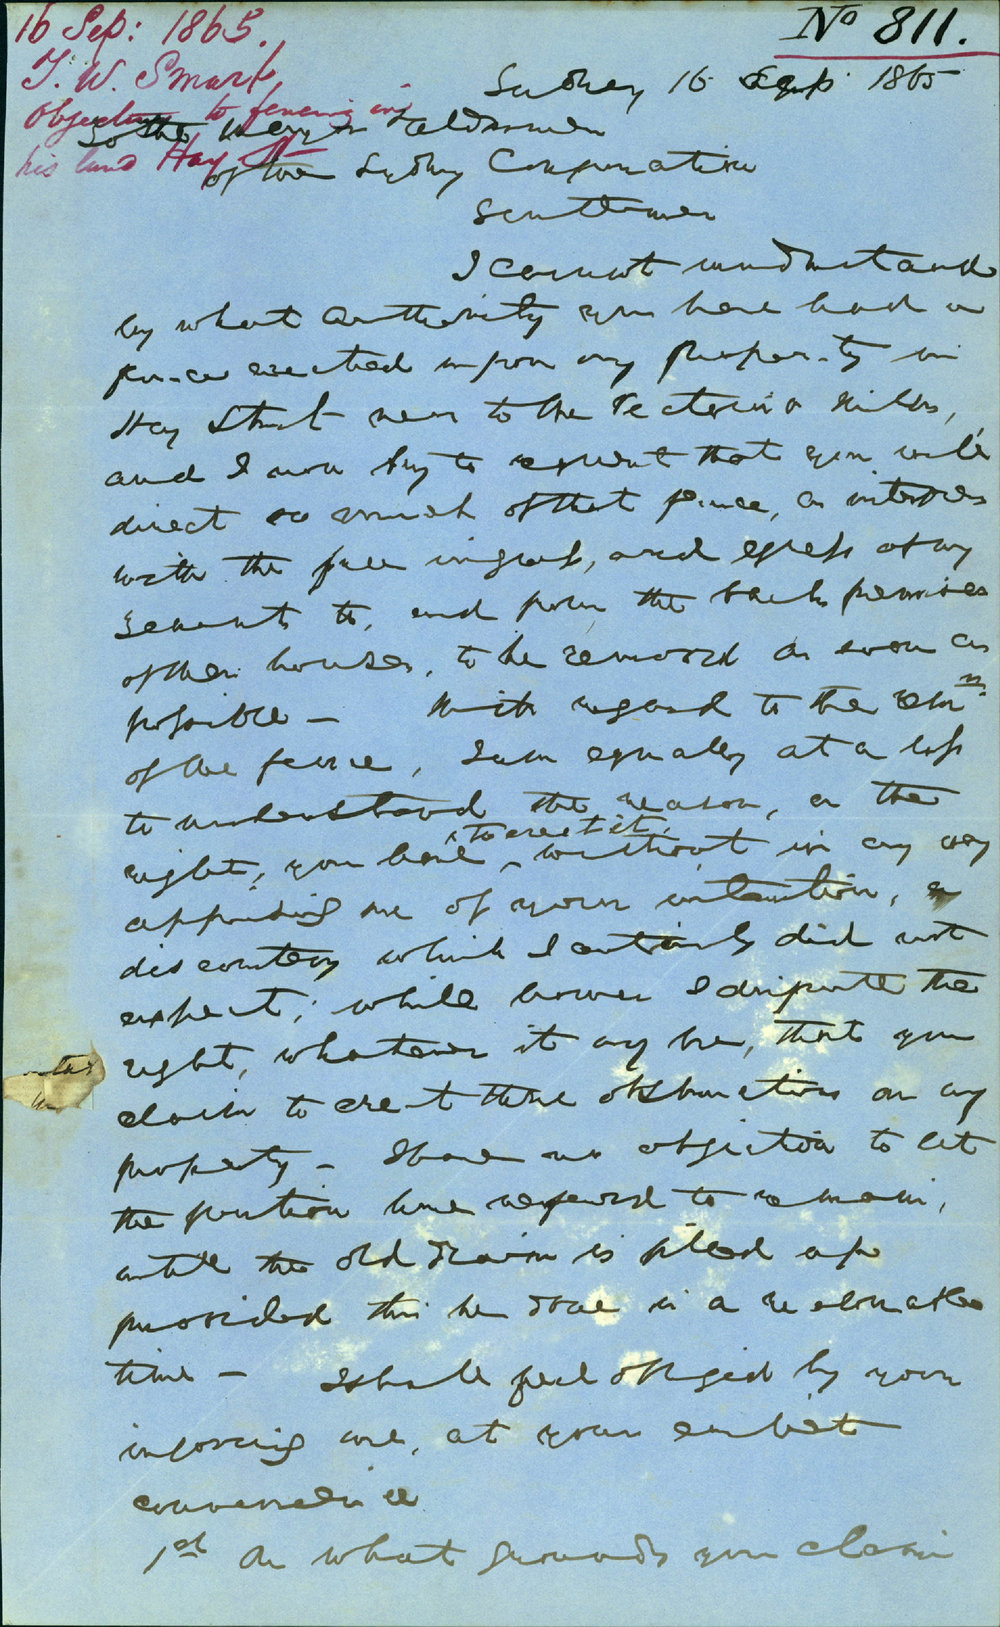 16 Sep: 1865.
T. W. Smart
Objecting to fencing in
his land Hay St
No 811.
Sydney 16 Sep 1865
To the Mayor & Aldermen
of the Sydney Corporation
Gentlemen
I cannot understand
by what authority you have had a
fence erected upon my property in
Hay Street near to the Victoria
and I now beg to request that you will
direct so much of that fence, as interferes
with the free ingress, and egress of my
tenants to, and from the back premises
of their houses, to be removed as soon as
possible — With regard to the rem
of the fence, I am equally at a loss
to understand the reason, or the
right, you have to erect it, without in any way
apprising me of your intention, a
discourtesy which I certainly did not
expect; while however I dispute the
right, whatever it may be, that you
claim to erect these obstructions on my
property — I have no objection to let
the portion have referred to remain,
until the old drain is filled up
provided this be done in a reasonable
time — I shall feel obliged by your
informing me, at your earliest
convenience
1st On what grounds you claim